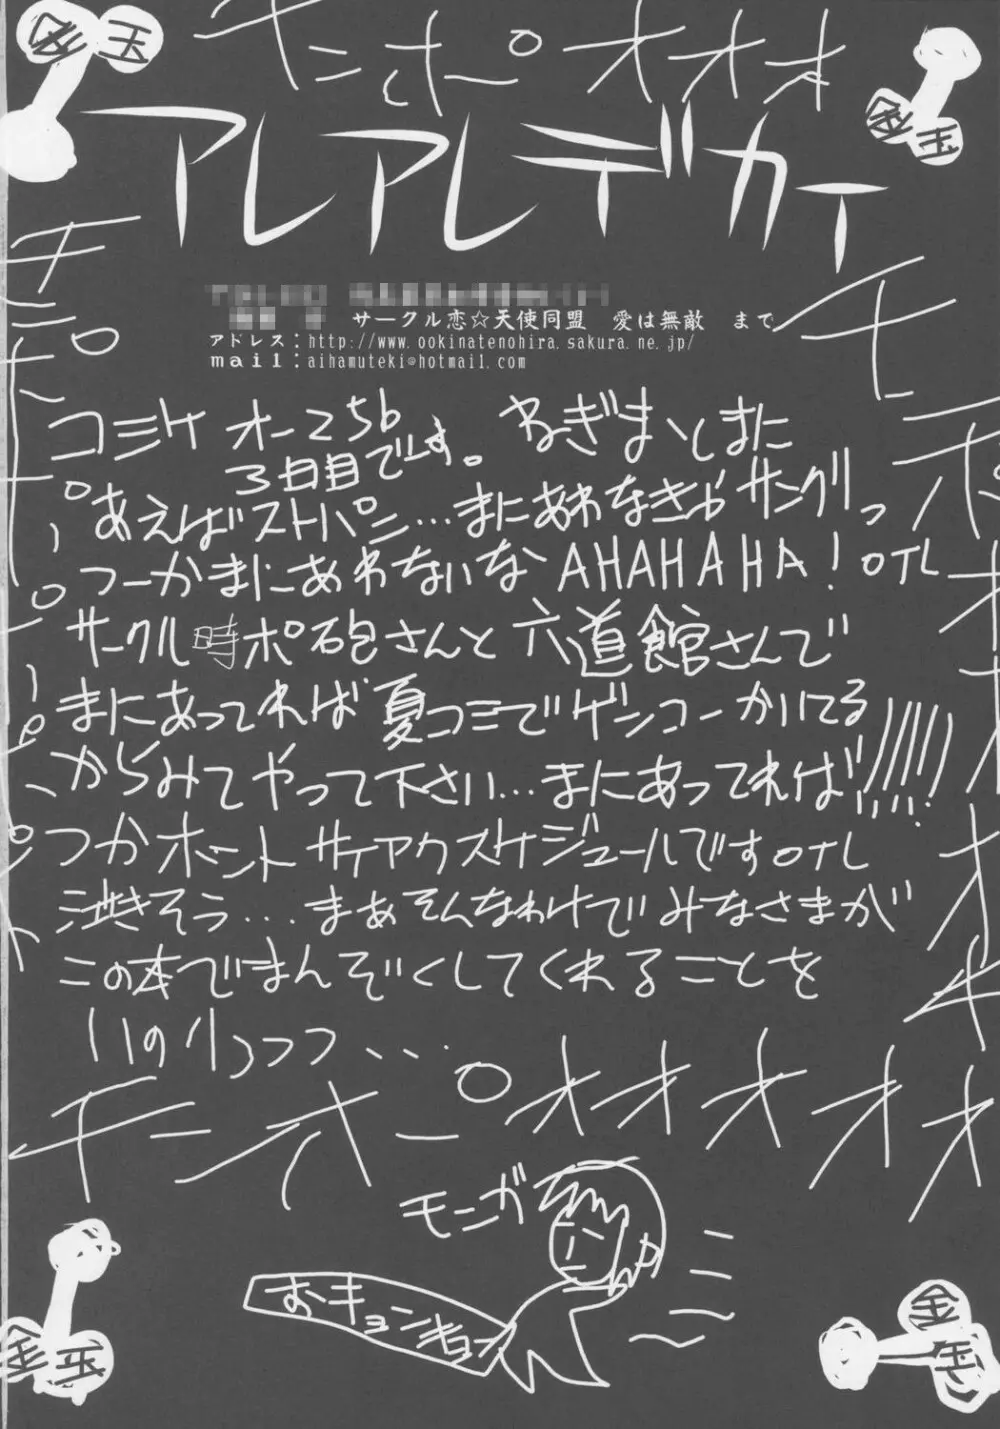 チンポー オオオ
アレアレデカイ
サークル恋☆天使同盟 愛は無敵 まで
アドレス:http://www.ookinatenohira.sakura.ne.jp/
mail:aihamuteki@hotmail.com
コミケ オー25b
3日目です。 ねぎまとまに
あえばストパン…まにあわなきゃサングリっ
つーかまにあわないな AHAHAHA! OTL
サークル時ポ砲さんと六道館さんで
まにあってれば夏コミでゲンコーかいてる
からみてやって下さい…まにあってれば!!!!!
つかホントサイアクスケジュールですOTL
泣きそう…まあそんなわけでみなさまが
この本でまんぞくしてくれることを
いのりっつつ、…
チンポー オオオオオオ
モニガ
おキョンキョン
金玉
金玉
金玉
金玉